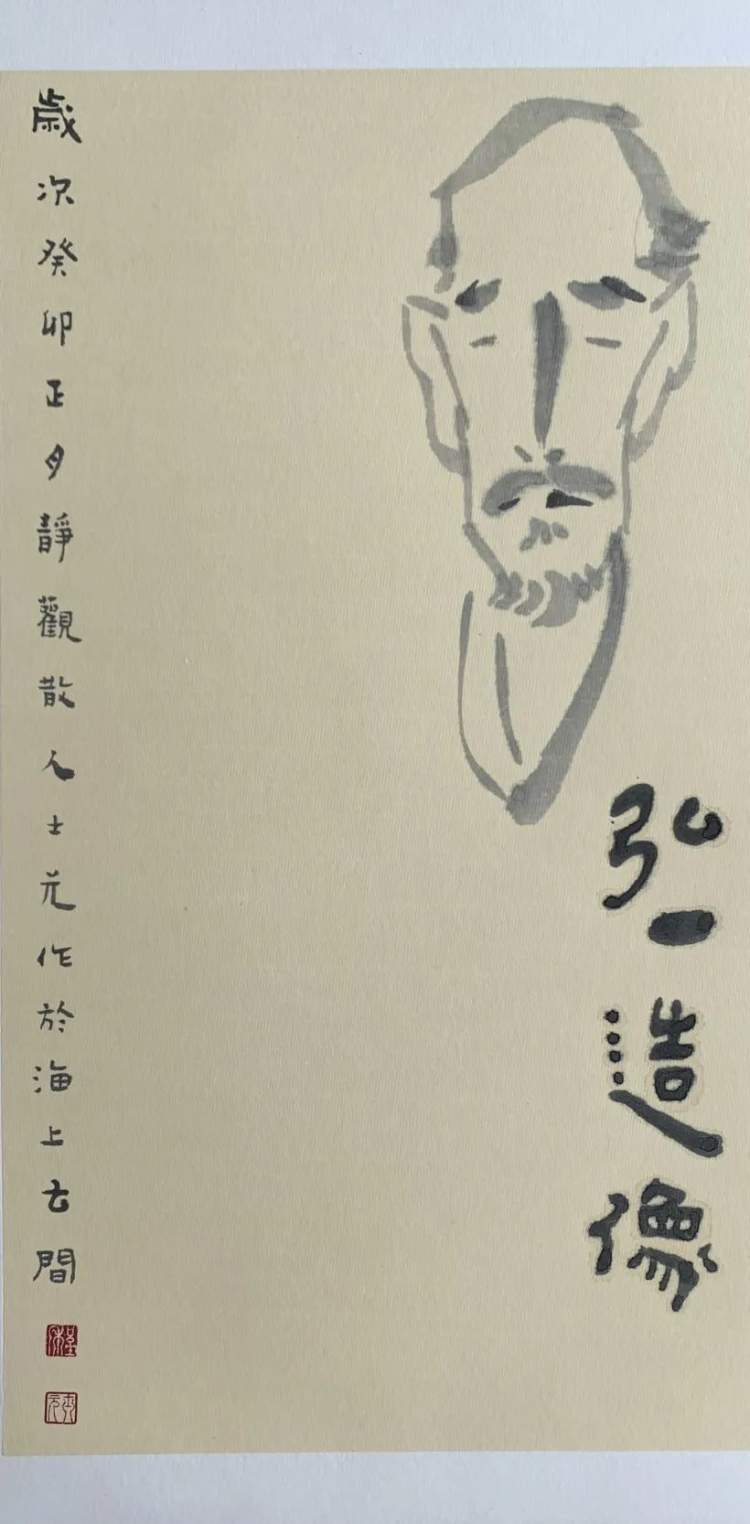 弘一造像
歲次癸卯正月靜觀散人士元作於海上云間